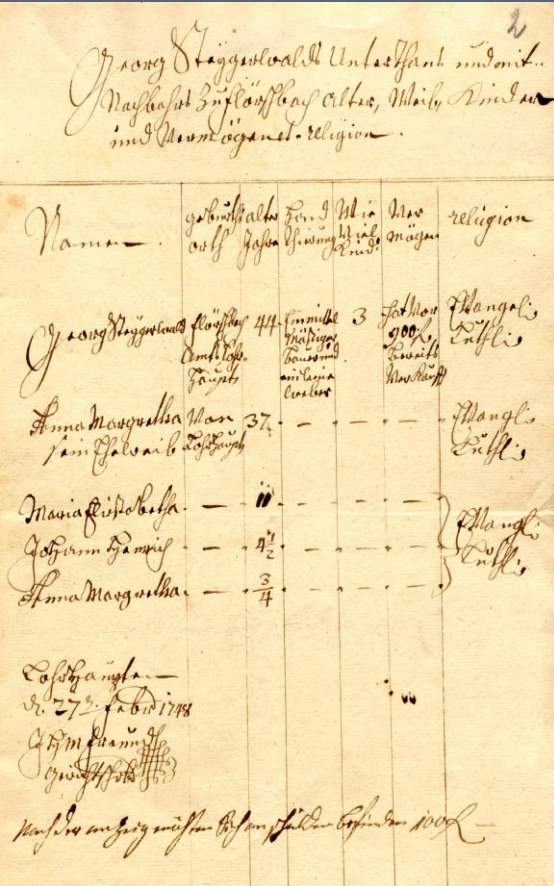 2
Georg Steÿgerwalds Unterthans und mit-
Nachbahrs zu flörsbach alter, Weib, Kinder
und Vermögenet. religion.
Namen.
geburths orth
alter Jahre
Hand thierung
Wie Viel Kinder
Ver mögen
religion
Georg Steÿgerwald
flörsbach Amts Lohr-
haupt
44.
Ein mittel
mäßiger
bauer und
ein leine
weber
3
hat vor
900 f.
bereits
Verkaufft
Evangeli
Luthli:
Anna Margretha
sein Eheweib
Von
Lohrhaupt
37.
Evangli:
Luthli:
Maria Elisabetha.
11
Johann Henrich
4 1/2
Evangli:
Luthli:
Anna Margretha.
3/4
Lohrhaupten
d. 27t. Febr 1748
Nach der anzeig Schulden befinden 100 f